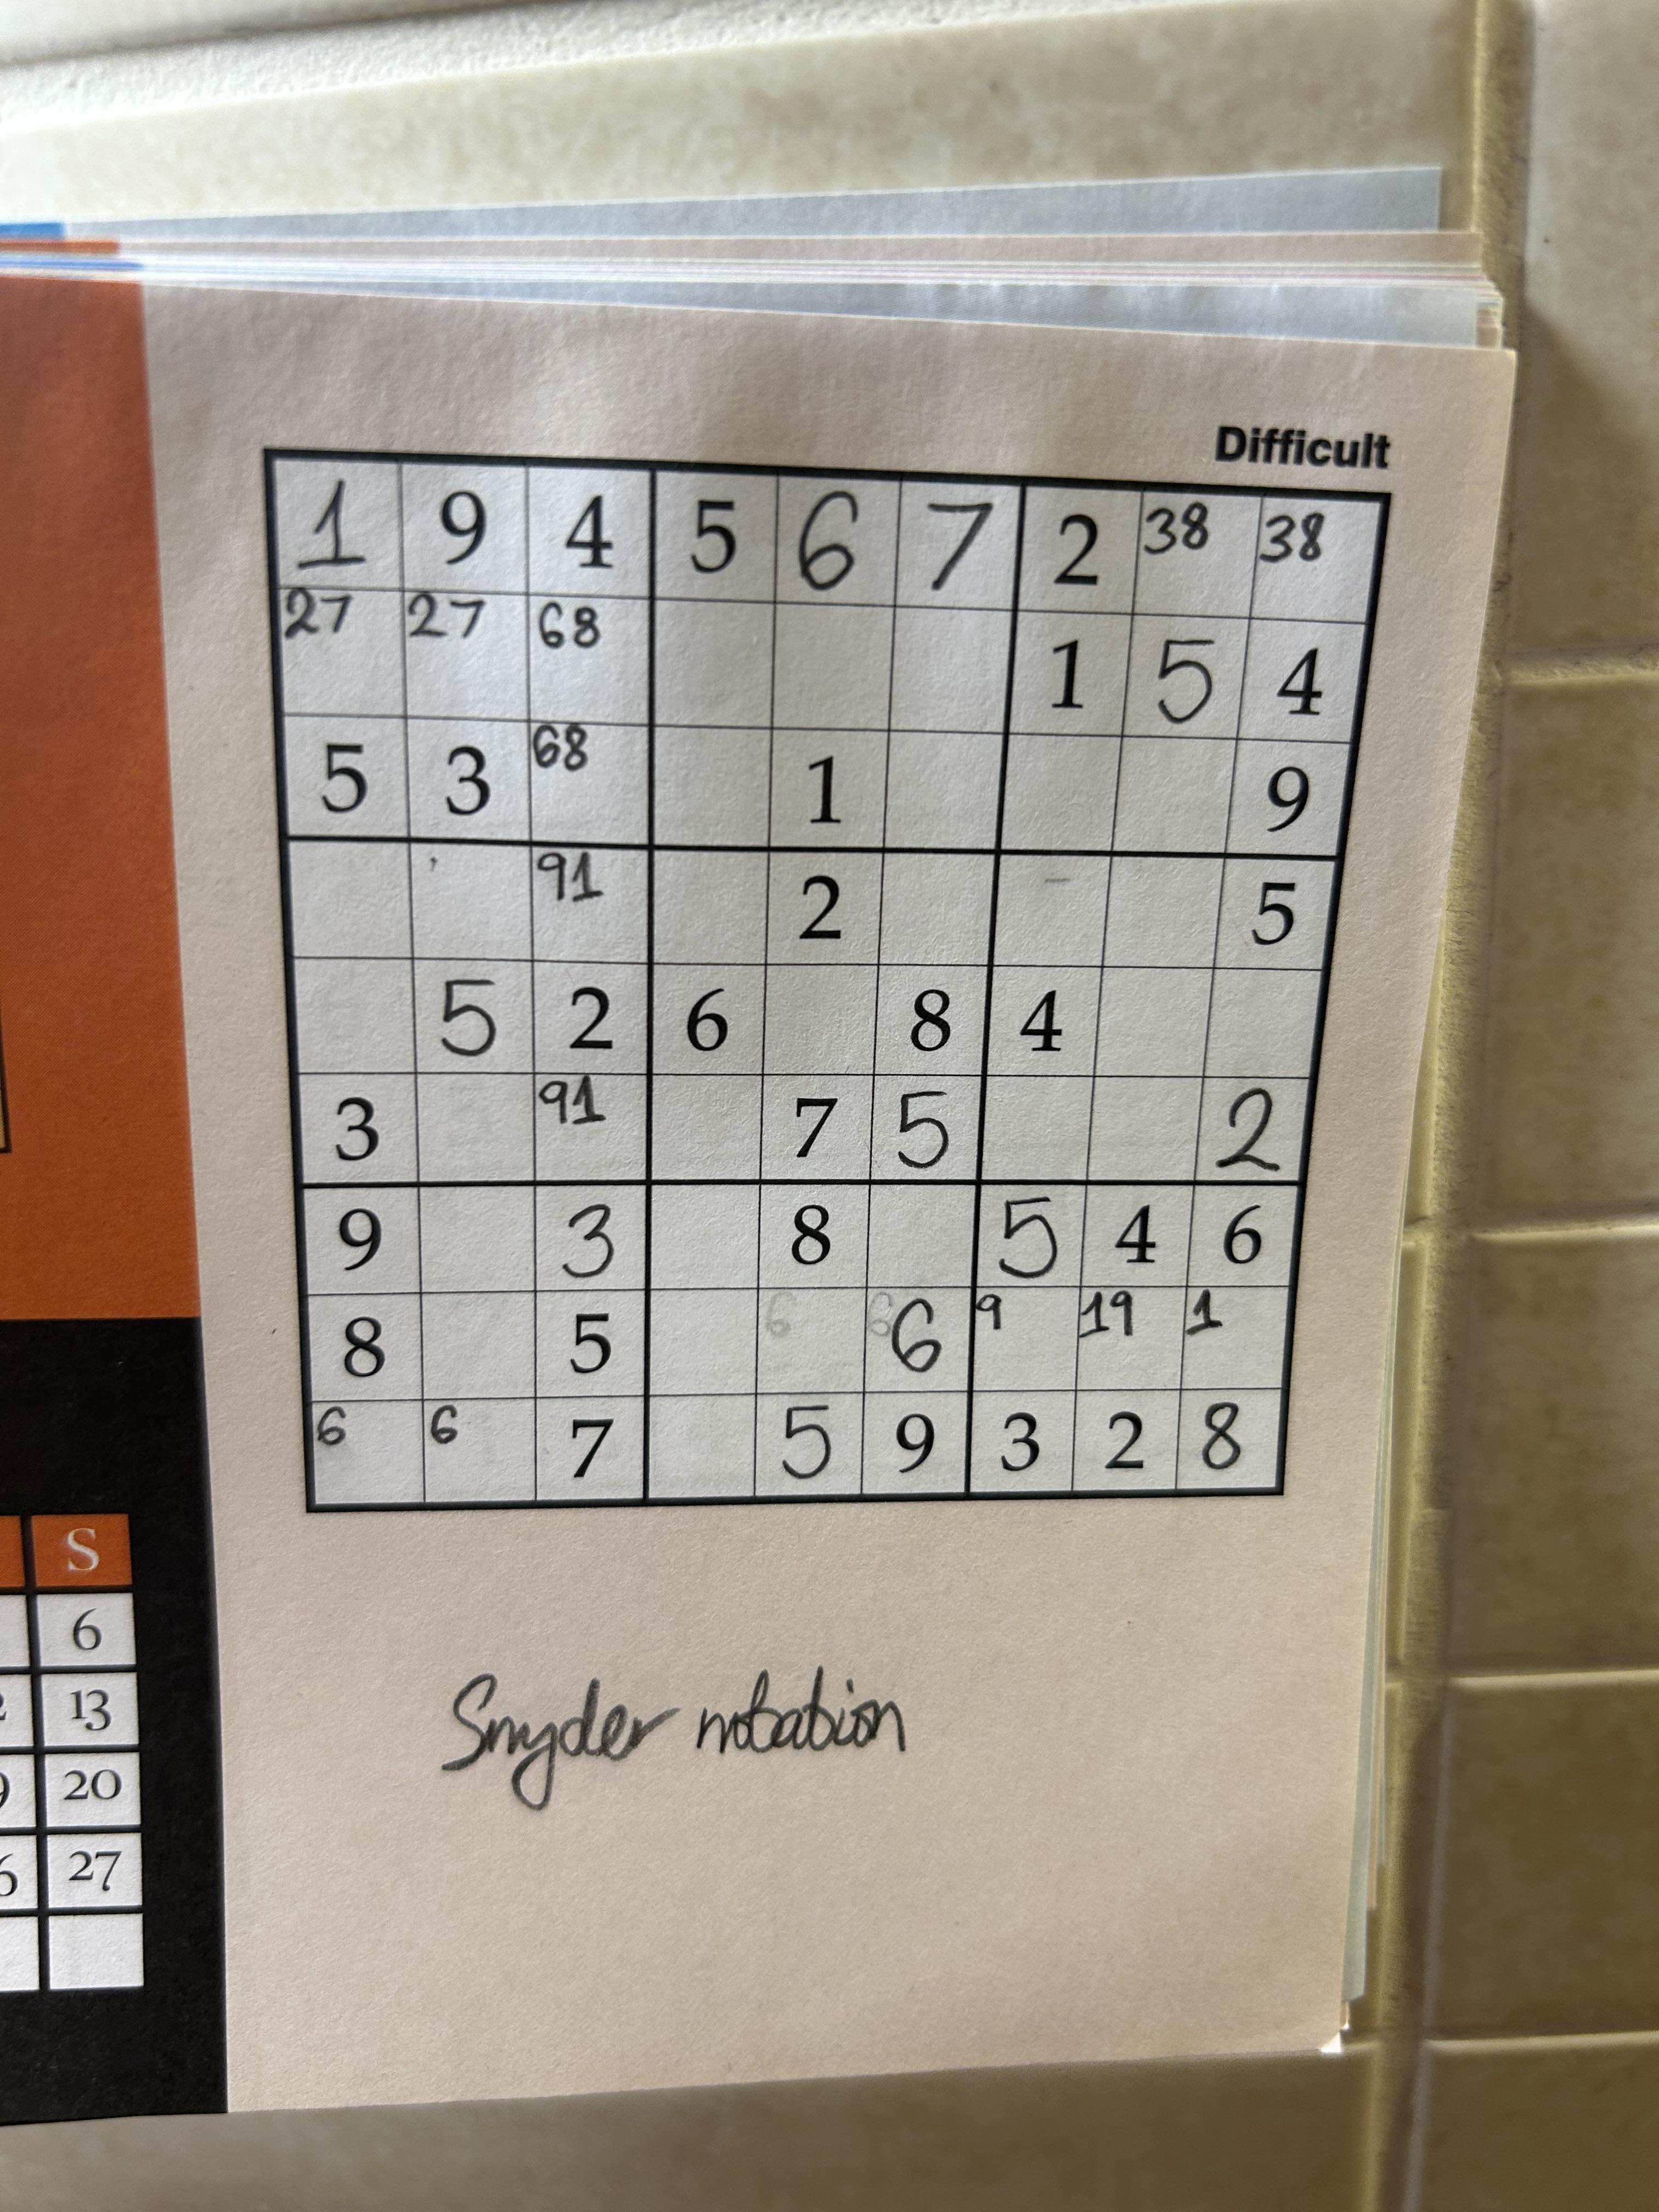 Difficult
1 9 4 5 6 7 2 38 38
27 27 68 1 5 4
5 3 68 1 9
91 2 5
5 2 6 8 4
3 91 7 5 2
9 3 8 5 4 6
8 5 6 6 6 9 19 1
6 6 7 5 9 3 2 8
S
6
13
20
27
Snyder notation